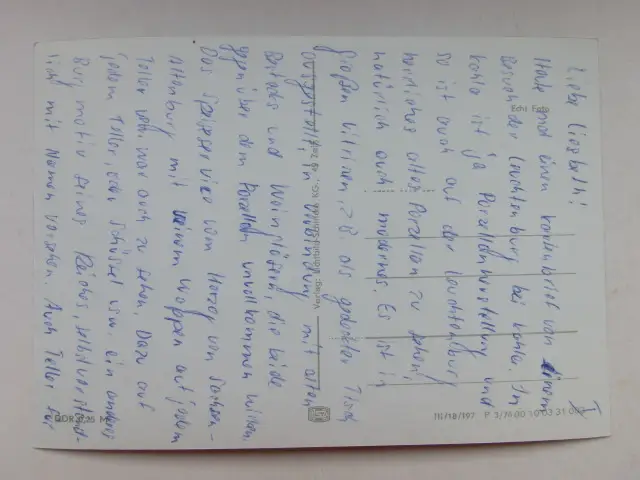 I
Liebe Liesbeth!
Heute mal einen Kartenbrief von einem
Besuch der Leuchtenburg bei Kahla. In
Kahla ist ja Porzellanherstellung und
so ist auch auf der Leuchtenburg
herrliches altes Porzellan zu sehen,
natürlich auch modernes. Es ist in
großen Vitrinen, z.B. als gedeckter Tisch
ausgestellt, in Verbindung mit alten
Bestecks und Weingläsern, die beide
gegenüber dem Porzellan unvollkommen wirken.
Das Speiseservice vom Herzog von Sachsen-
Altenburg mit seinem Wappen auf jedem
Teller war auch zu sehen. Dazu auf
jedem Teller, oder Schüssel usw. ein anderes
Burgmotiv seines Reiches, selbstverständ-
lich mit Namen versehen. Auch Teller für
Echt Foto
Verlag: KG.,
III/18/197 P 3/76 00 10 03 31 063
DDR 0,25 M